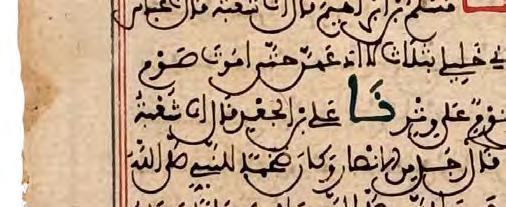 مسلم بن ابراهيم قال انا شعبة قال
خليلي بثلاث لا ادعهن حتى اموت صوم
ونوم على وتر نا علي بن الجعد قال انا شعبة
قال رجل من الانصار وكان ضخما للنبي صلى الله